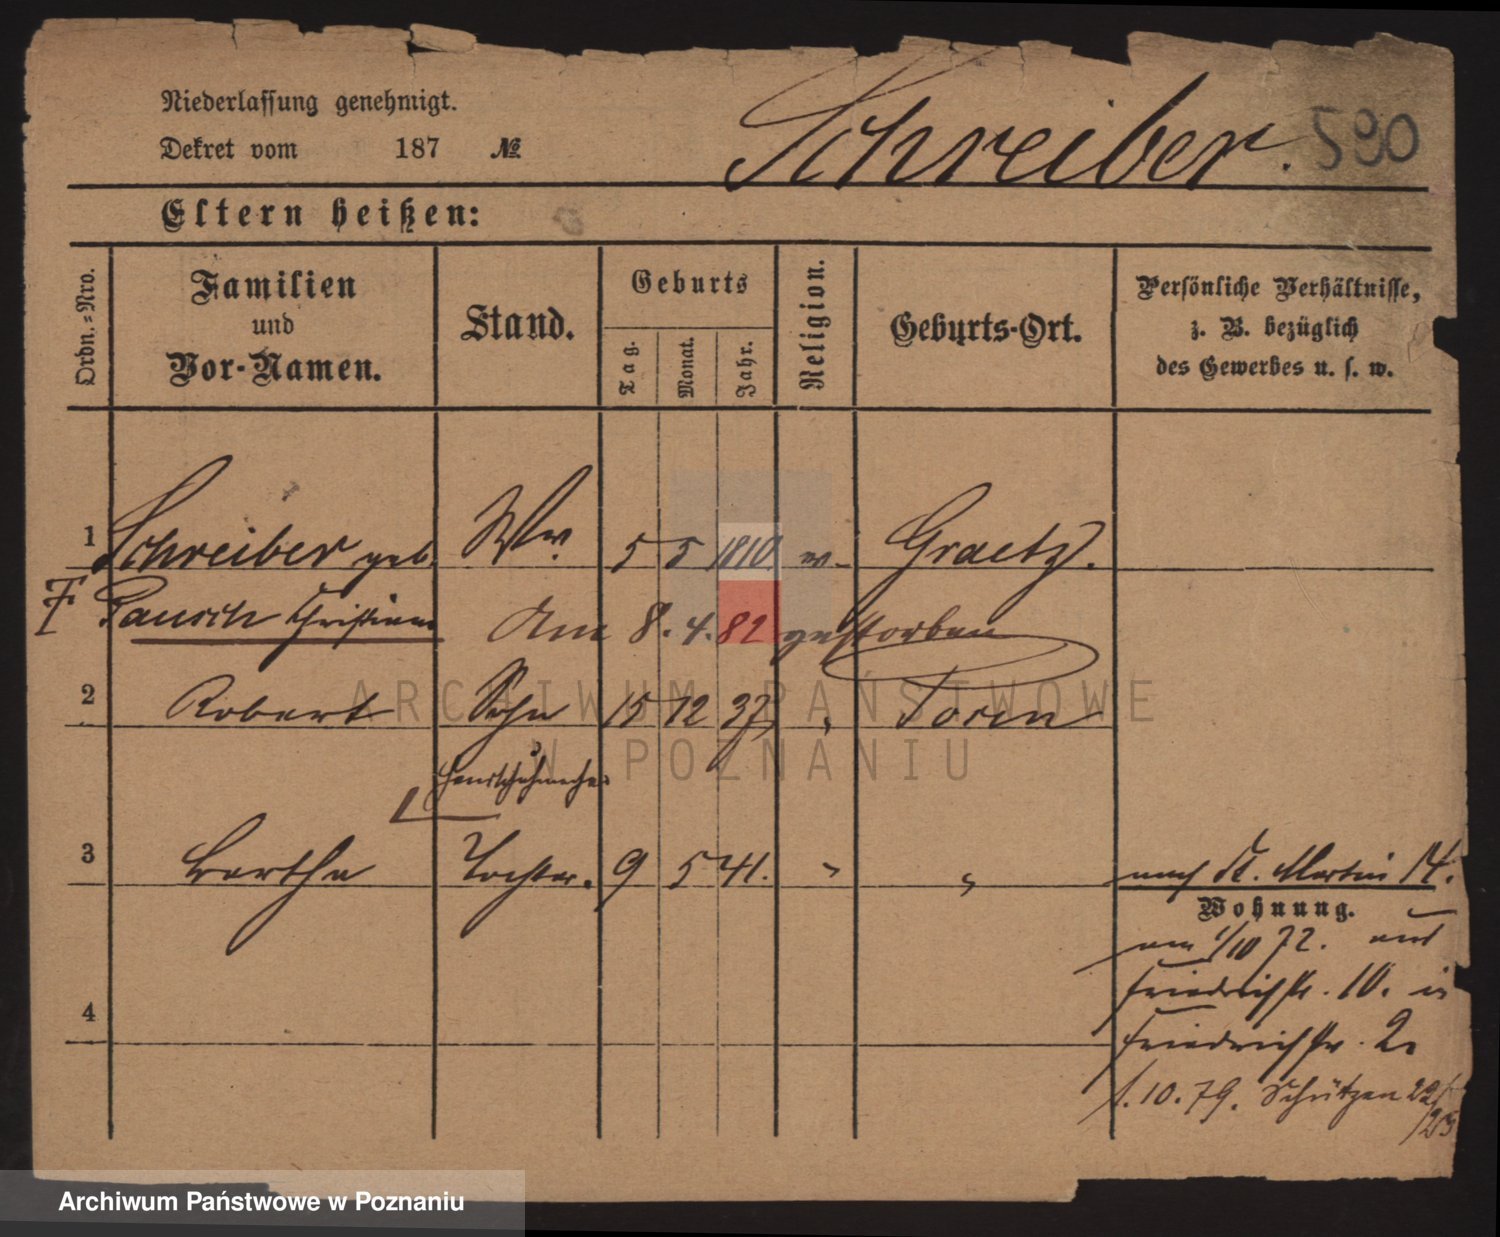 Niederlassung genehmigt.
Dekret vom 187 №
Schreiber. 590
Eltern heißen:
Ordn.-Nro.
Familien
und
Vor-Namen.
Stand.
Geburts
Tag.
Monat.
Jahr.
Religion.
Geburts-Ort.
Persönliche Verhältnisse,
z. B. bezüglich
des Gewerbes u. s. w.
1 Schreiber geb. Ww. 5 5 1810. Graetz.
Pausch Christiane Am 8. 4. 82 gestorben
2 Robert Sohn 15 12 37 " Toren
Handschuhmacher
3 Bertha Tochter. 9 5 41. " " nach St. Martin 14.
Wohnung.
am 1/10 72. aus
Friedrichstr. 10. in
Friedrichstr. 2.
4
1. 10. 79. Schützen 22/
/25
ARCHIWUM PAŃSTWOWE
W POZNANIU
Archiwum Państwowe w Poznaniu